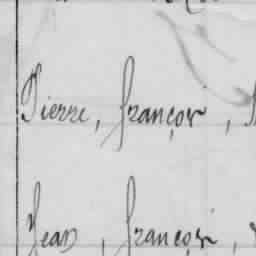 Pierre, françois,
Jean, françois,